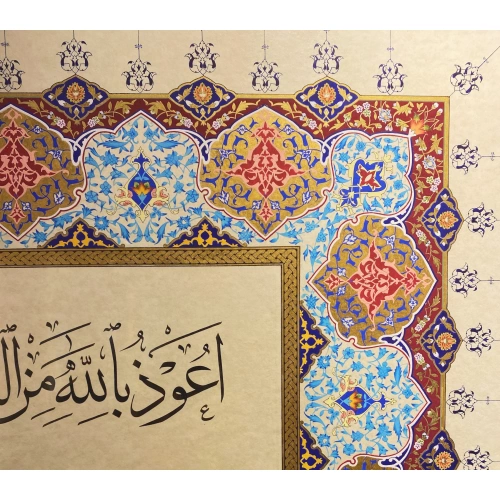 اَعُوْذُ بِاللّٰهِ مِنَ